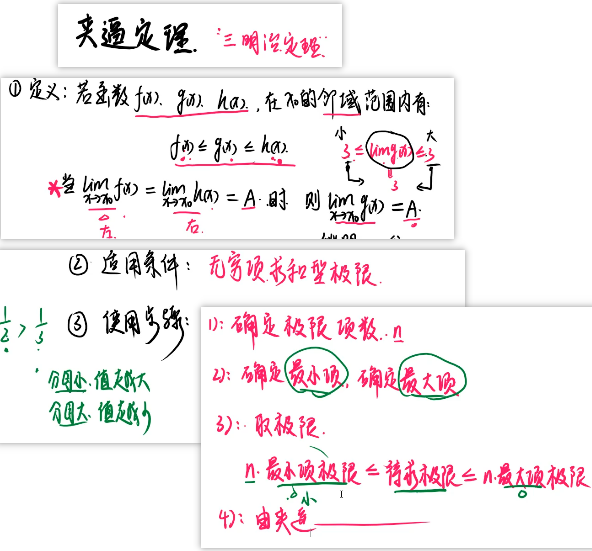 夹逼定理. "三明治定理"
① 定义: 若函数 f(x). g(x). h(x). 在x₀的邻域范围内有:
f(x) ≤ g(x) ≤ h(x).
小 大
3 ≤ lim g(x) ≤ 3
3
*当 lim x→x₀ f(x) = lim x→x₀ h(x) = A. 时. 则 lim x→x₀ g(x) = A.
左. 右.
② 适用条件: 无穷项求和型极限.
1/2 > 1/3
③ 使用步骤:
分母小. 值越大
分母大. 值越小
1): 确定极限项数. n
2): 确定最小项, 确定最大项
3): 取极限.
n·最小项极限 ≤ 待求极限 ≤ n·最大项极限
小
4): 由夹逼